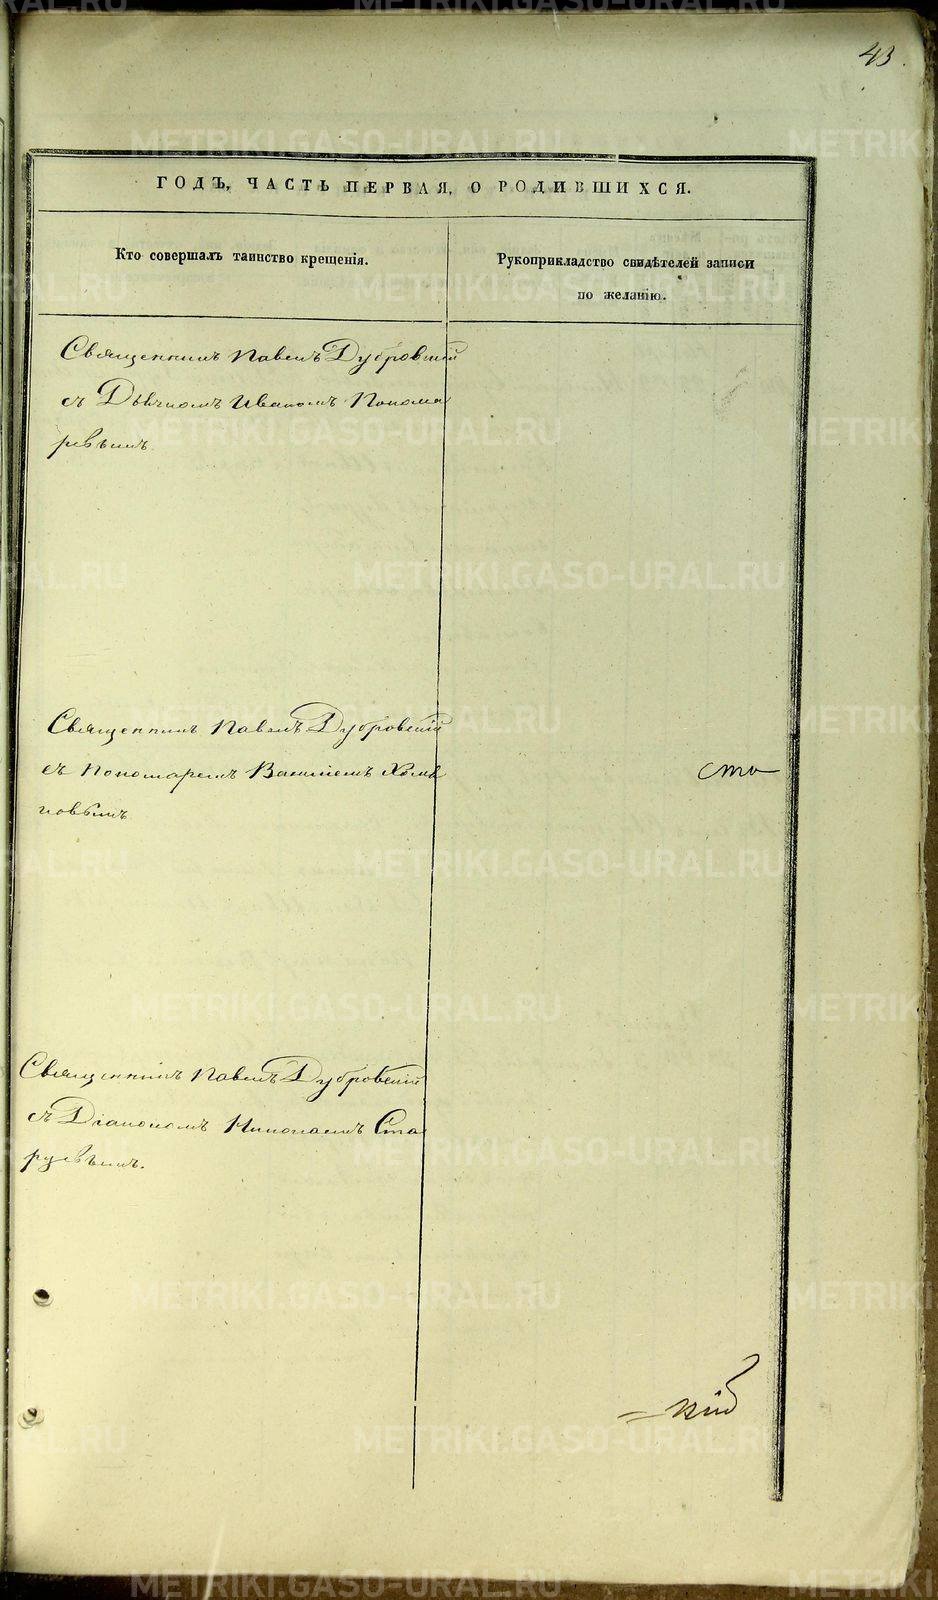 43.
ГОДЪ, ЧАСТЬ ПЕРВАЯ, О РОДИВШИХСЯ.
Кто совершалъ таинство крещенія.
Рукоприкладство свидѣтелей записи
по желанію.
Священникъ Павелъ Дубровскій
съ Дьячкомъ Иваномъ Понома
ревымъ.
Священникъ Павелъ Дубровскій
съ Пономаремъ Василіемъ Хомя
ковымъ
сто
Священникъ Павелъ Дубровскій
съ Діакономъ Николаемъ Ста
руевымъ.
METRIKI.GASO-URAL.RU